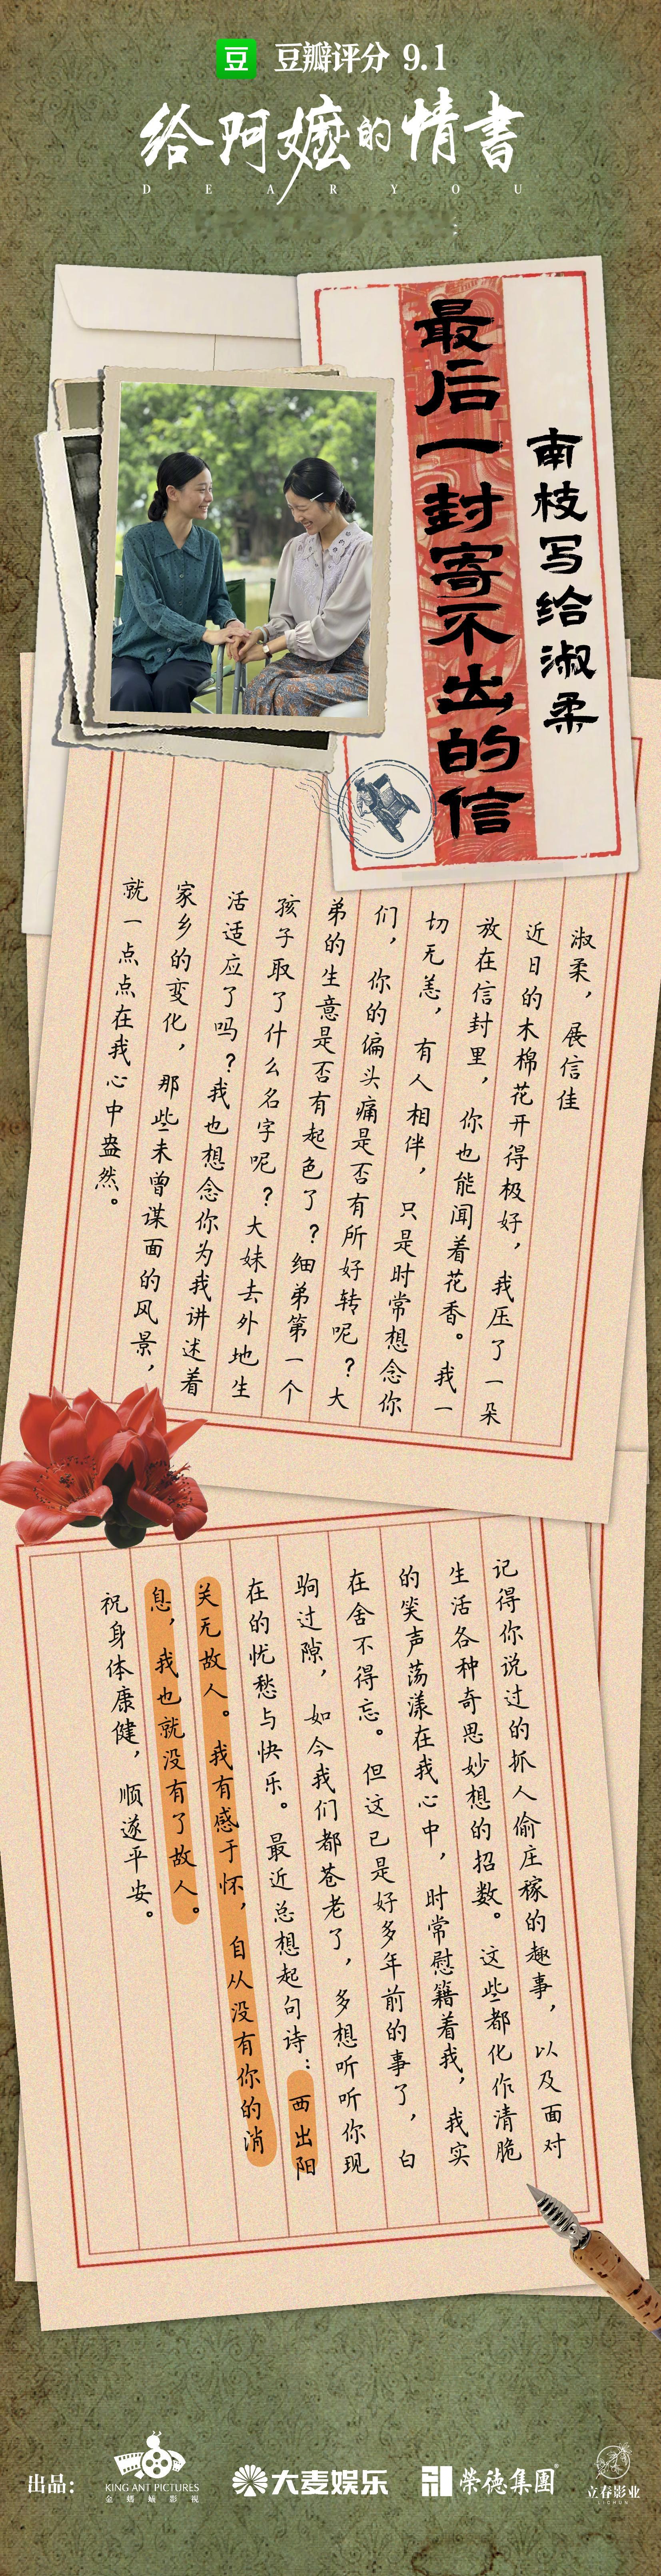 豆 豆瓣评分 9.1
给阿嬷的情書
DEAR YOU
南枝写给淑柔
最后一封寄不出的信
淑柔，展信佳
近日的木棉花开得极好，我压了一朵
放在信封里，你也能闻着花香。我一
切无恙，有人相伴，只是时常想念你
们，你的偏头痛是否有所好转呢？大
弟的生意是否有起色了？细弟第一个
孩子取了什么名字呢？大妹去外地生
活适应了吗？我也想念你为我讲述着
家乡的变化，那些未曾谋面的风景，
就一点点在我心中盎然。
记得你说过的抓人偷庄稼的趣事，以及面对
生活各种奇思妙想的招数。这些都化作清脆
的笑声荡漾在我心中，时常慰籍着我，我实
在舍不得忘。但这已是好多年前的事了，白
驹过隙，如今我们都苍老了，多想听听你现
在的忧愁与快乐。最近总想起句诗：西出阳
关无故人。我有感于怀，自从没有你的消
息，我也就没有了故人。
祝身体康健，顺遂平安。
出品：
KING ANT PICTURES
金蟻蟻影视
大麦娱乐
荣德集團
立春影业
LICHUN